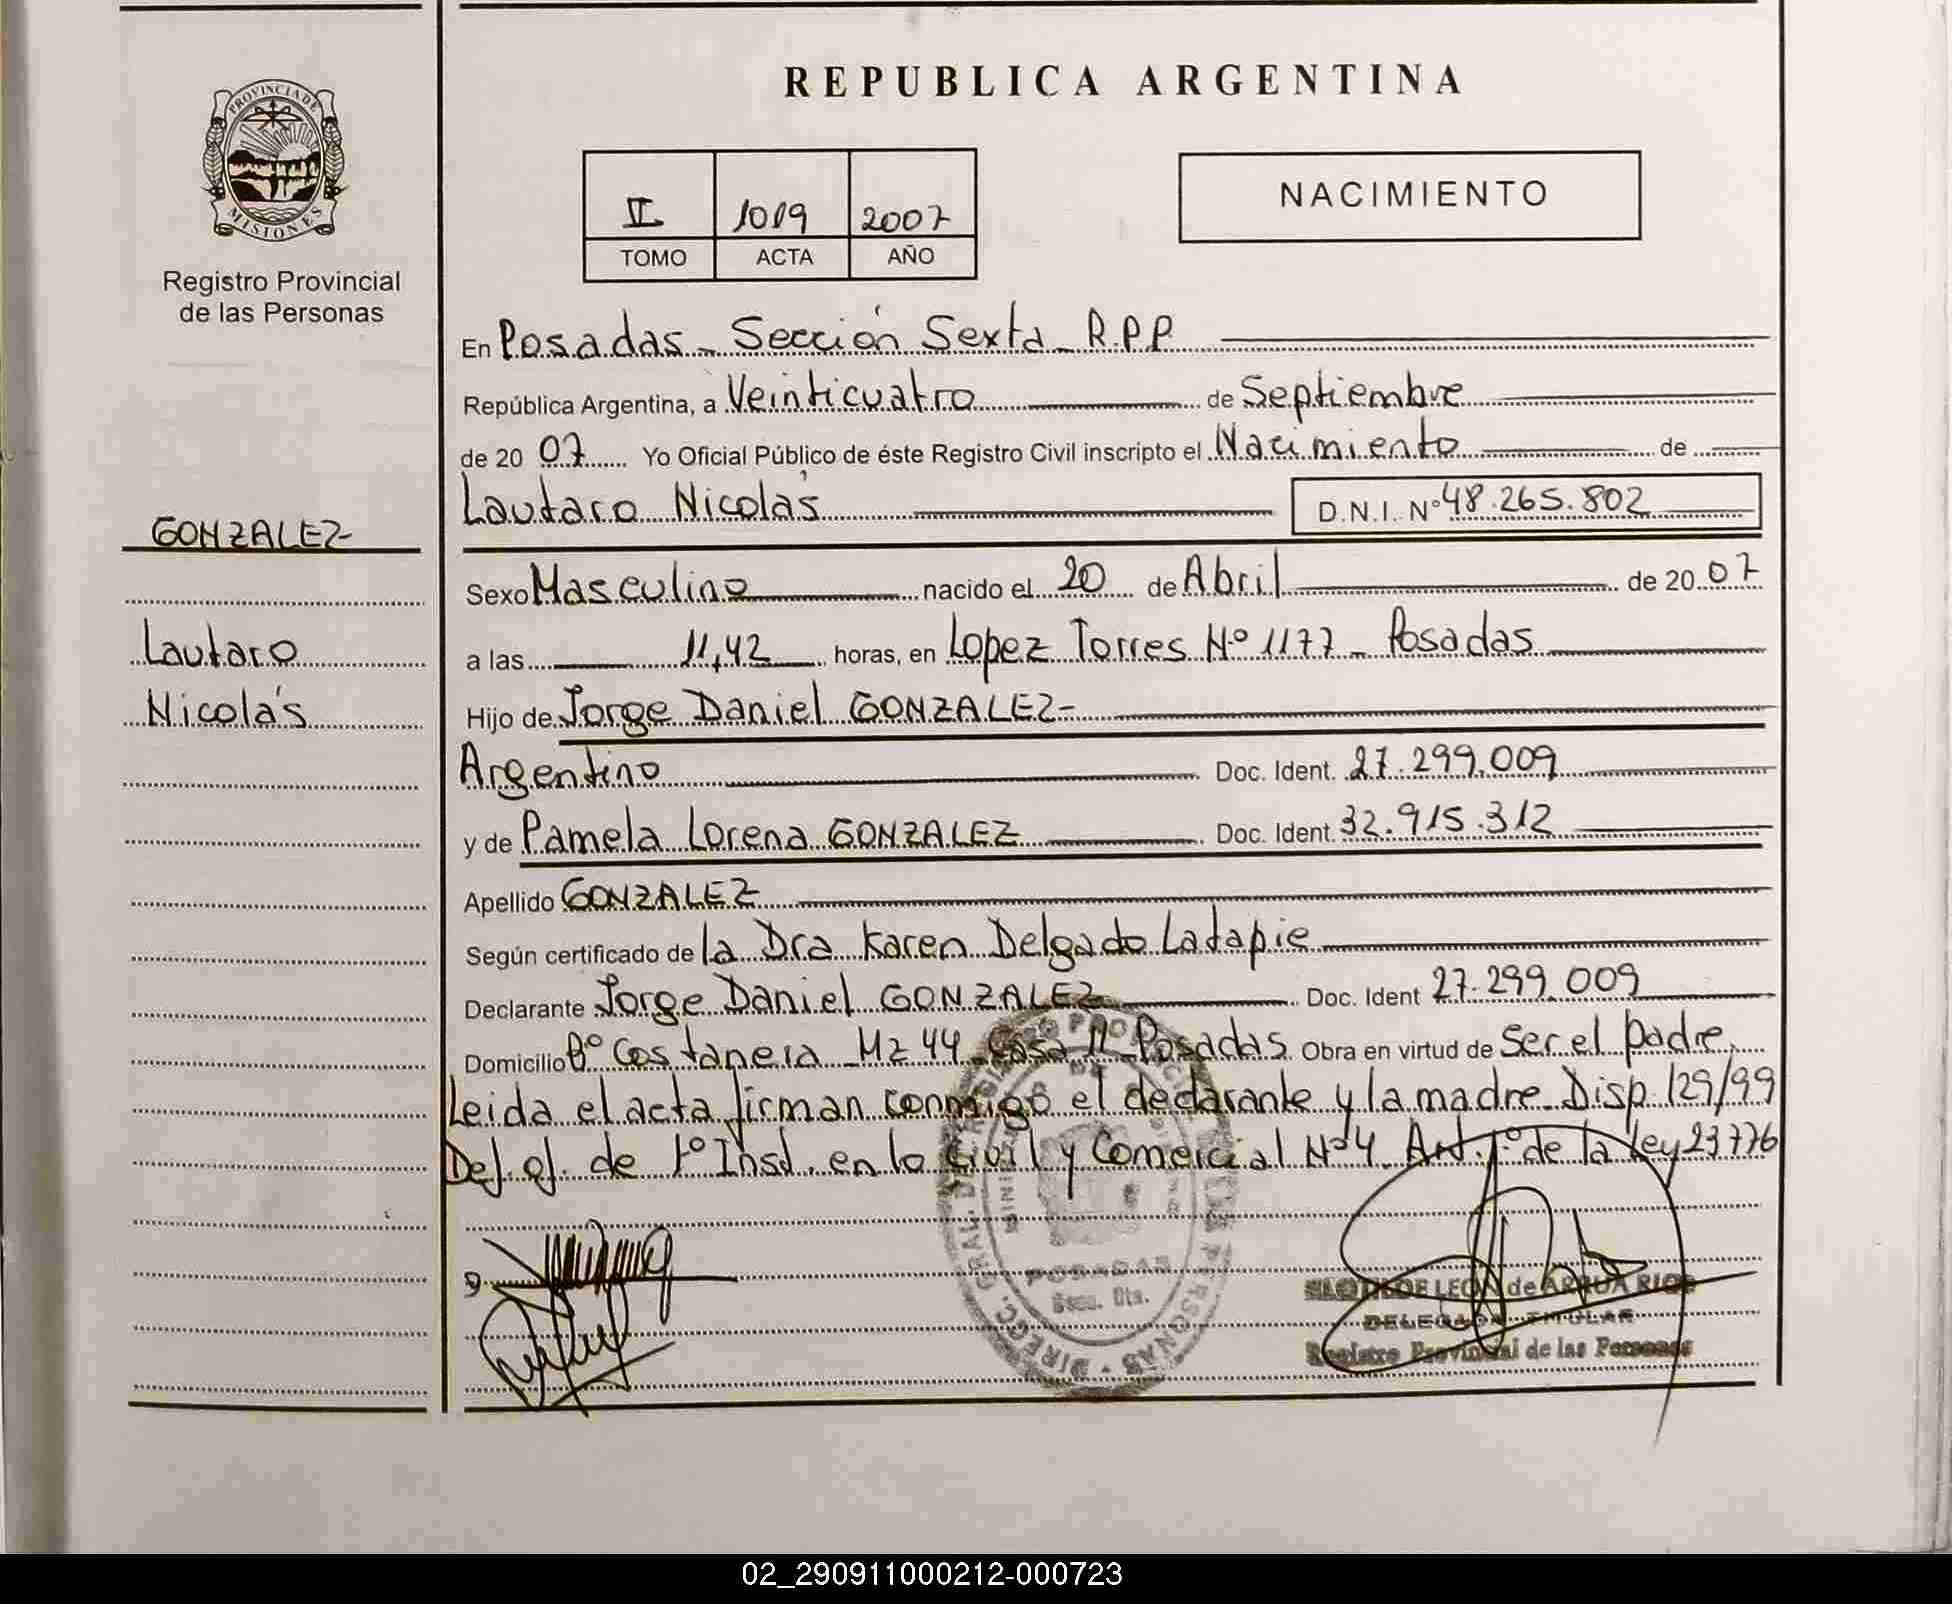 REPUBLICA ARGENTINA
PROVINCIA DE
MISIONES
Registro Provincial
de las Personas
II 1019 2007
TOMO ACTA AÑO
NACIMIENTO
En Posadas - Sección Sexta - R.P.P.
República Argentina, a Veinticuatro de Septiembre
de 20 07 Yo Oficial Público de éste Registro Civil inscripto el Nacimiento de
Lautaro Nicolás D.N.I. Nº 48.265.802
GONZALEZ
Lautaro
Nicolás
Sexo Masculino nacido el 20 de Abril de 20 07
a las 11,42 horas, en Lopez Torres Nº 1177 - Posadas
Hijo de Jorge Daniel GONZALEZ-
Argentino Doc. Ident. 27.299.009
y de Pamela Lorena GONZALEZ Doc. Ident. 32.915.312
Apellido GONZALEZ
Según certificado de la Dra Karen Delgado Latapie
Declarante Jorge Daniel GONZALEZ Doc. Ident 27.299.009
Domicilio Bº Costanera Mz 44 Casa 11 Posadas Obra en virtud de Ser el padre.
Leida el acta firman conmigo el declarante y la madre - Disp 129/99
Def. of. de 1º Inst. en lo Civil y Comercial Nº 4. Art. 1º de la Ley 23776
POSADAS
Secc. 6ta.
LEON de ARRUA RIOS
DELEGADA TITULAR
Registro Provincial de las Personas
02_290911000212-000723